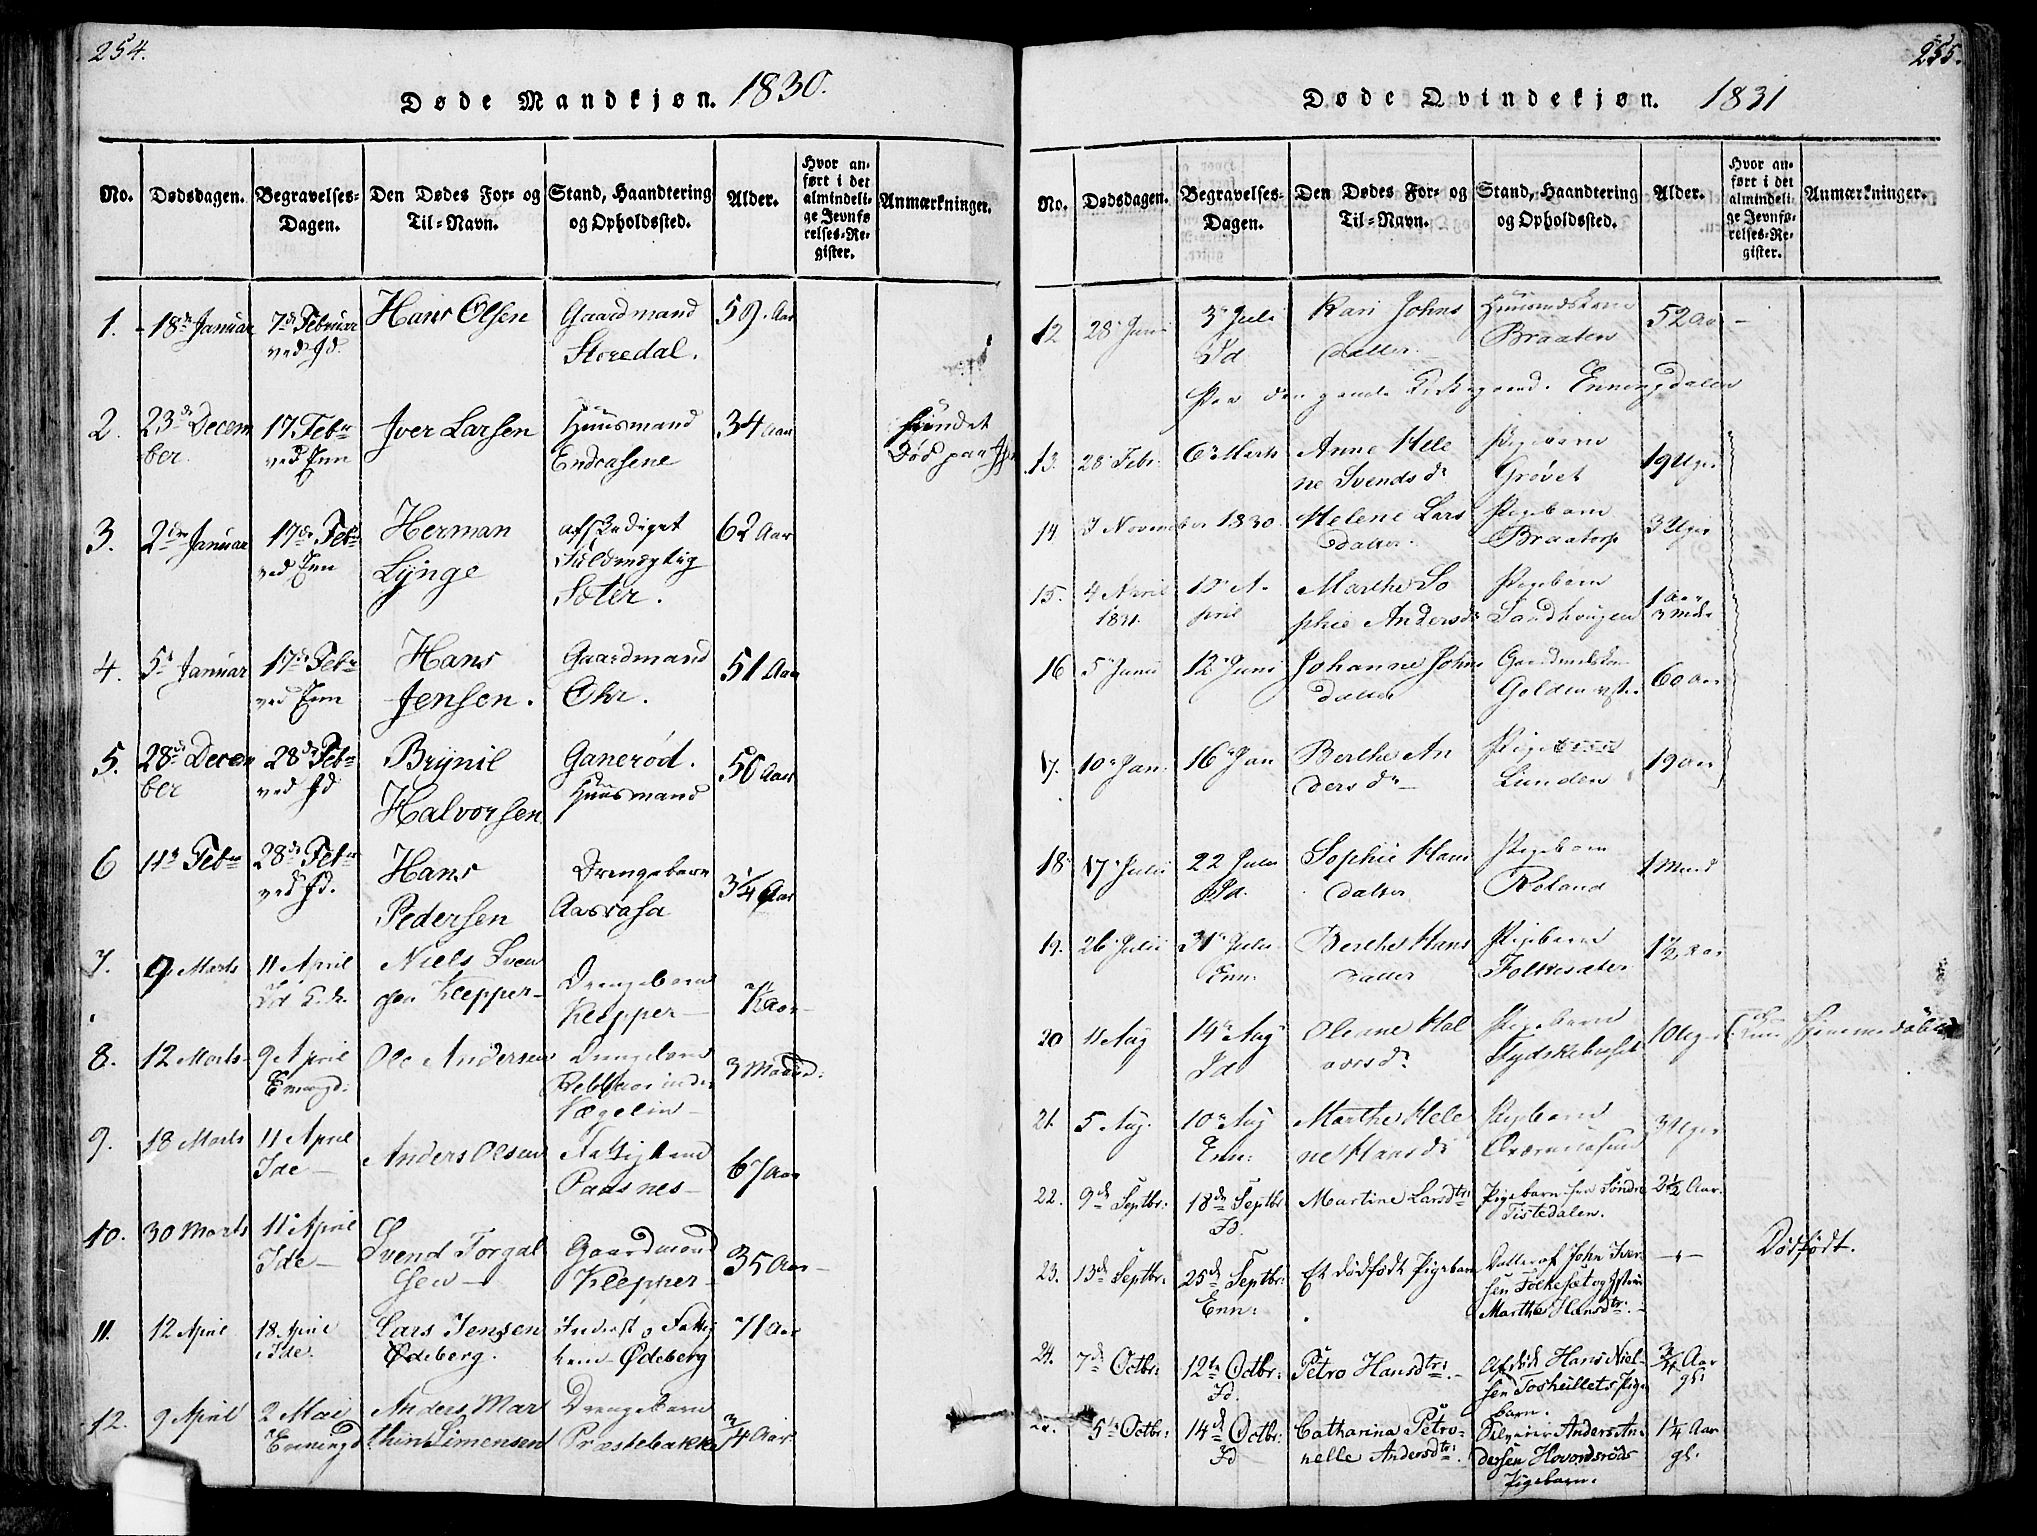 254.
Døde Mandkjøn. 1830.
No. Dødsdagen. Begravelses-Dagen. Den Dødes For- og Til-Navn. Stand, Haandtering og Opholdssted. Alder. Hvor anført i det almindelige Jevnførelses-Register. Anmærkninger.
1. 18de Januar 7de Februar Hans Olsen Gaardmand 59. Aar
ved Id. Storedal.
2. 23de Decem 17. Febr Iver Larsen Huusmand 34 Aar fundet
ber. ved Enn Endrasene Død paa
3. 2den Januar 17de Febr Herman afskediget 62 Aar
ved Enn Lynge Fuldmægtig
Soter.
4. 5t Januar 17de Febr Hans Gaardmand 51 Aar
ved Enn Jensen. Ohr.
5. 28de Decem 28de Febr Brynil Ganerød. 50 Aar
ber ved Id Halvorsen Huusmand
6 11t Febr 28de Febr Hans Drengebarn 3¼ Aar
ved Id. Pedersen Aasrasa
7. 9 Marts 11 April Niels Sven Drengebarn Aar
Id sen Klepper Klepper
8. 12 Marts 9 April Ole Andersen Drengebarn 3 Maand:
Enningd:
9. 18 Marts 11 April Anders Olsen Fattiglem 67 Aar
Ide Paasnes
10. 30 Marts 11 April Svend Torgal Gaardmand 35 Aar
Ide sen Klepper
11. 12 April 18 April Lars Jensen Inderst og Fattig 71 Aar
Ide. Ødeberg. lem Ødeberg
12. 9 April 2 Mai Anders Mar Drengebarn ¾ Aar
Enningd thin Simensen Præstebakke
255.
Døde Qvindekjøn. 1831
No. Dødsdagen. Begravelses-Dagen. Den Dødes For- og Til-Navn. Stand, Haandtering og Opholdssted. Alder. Hvor anført i det almindelige Jevnførelses-Register. Anmærkninger.
12 28 Juni 3 Juli Kari Johns Huusmdskone 52 Aar
Id datter Braaten
Paa den gamle Kirkegaard. Enningdalen
13. 28 Febr. 6 Marts Anne Hele Pigebarn 19 Uger
ne Svendsdr Grøvet
14 7 November 1830. Helene Lars Pigebarn 3 Uger
datter. Braatorp
15. 4 April 10 A- Marthe So Pigebarn 1 Aar
1831. pril phie Andersdr Sandhougen 3 Mdr
16 5 Juni 12 Juni Johanne Johns Gaardmdskone 60 Aar
datter
17. 10 Jan: 16 Jan Berthe An Pigebarn 19 Aar
dersdr Lunden
18 17 Juli 22 Juli Sophie Hans Pigebarn 1 Mand
Id. datter Roland
19. 26 Juli 31 Juli Berthe Hans Pigebarn 1½ Aar
Enn: datter Folkesæter
20 11 Aug 14 Aug Oleane Hal Pigebarn 10 Uger
Id vorsdr Tydskehuset
21. 5 Aug. 10 Aug Marthe Hele Pigebarn 3 Uger
Enn: ne Hansdr
22. 9de Septbr: 18de Septbr Martine Larsdtr: Pigebarn fra Søndre 2½ Aar.
Id. Tistedalen.
23. 13de Septbr: 25de Septbr: Et dødfødt Pigebarn Datter af John Iver- Dødfødt.
Enn: sen Folkeset og Hustrue
Marthe Hansdtr:
24. 7de Octbr: 12te Octbr: Petro Hansdtr: Afdøde Hans Niel- ¾ Aar
Id. sen Toshullets Pige gl:
barn.
5te Octbr: 14de Octbr: Catharina Petro- Anders An 1¼ Aar
Id nelle Andersdtr: dersen Hovordsrøds gl.
Pigebarn.